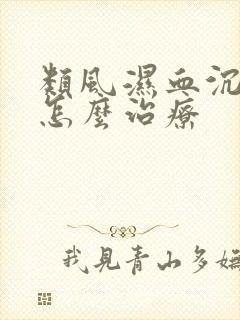 類風濕血沉
怎麼治療
我見青山多嫵